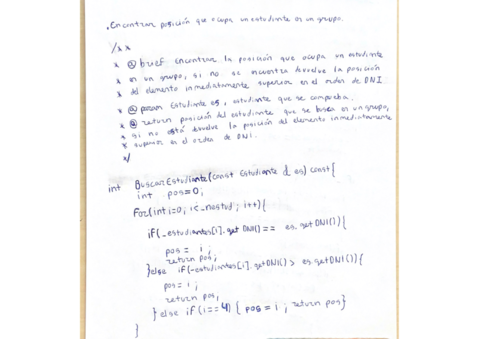 . Encontrar posición que ocupa un estudiante en un grupo.
/**
* @ brief Encontrar la posición que ocupa un estudiante
* en un grupo, si no se encuentra devuelve la posición
* del elemento inmediatamente superior en el orden de DNI.
* @ param Estudiante es, estudiante que se comprueba.
* @ return posición del estudiante que se busca en un grupo,
* si no está devuelve la posición del elemento inmediatamente
* superior en el orden de DNI.
*/
int BuscarEstudiante(const Estudiante & es) const{
int pos=0;
For(int i=0; i<_nestud; i++){
if(_estudiantes[i].getDNI() == es.getDNI()){
pos = i;
return pos;
}else if(_estudiantes[i].getDNI() > es.getDNI()){
pos = i;
return pos;
} else if(i==4) { pos = i ; return pos}
}